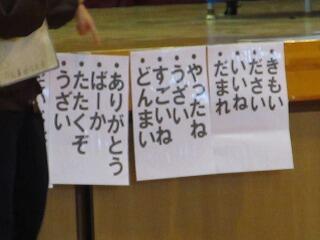 ・きもい
・ださい
・いいね
・だまれ
・やったね
・うざい
・すごいね
・どんまい
・ありがとう
・ばーか
・たたくぞ
・うざい